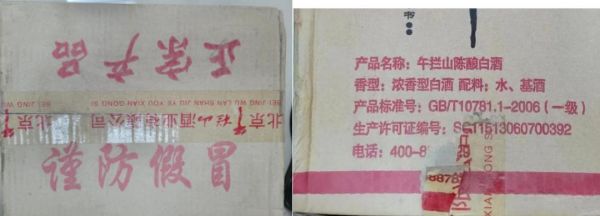 正宗产品
BEI JING WU LAN SHAN JIU YE YOU XIAN GONG SI
谨防假冒
书:
产品名称：午拦山陈酿白酒
香型：浓香型白酒 配料：水、基酒
产品标准号：GB/T10781.1-2006（一级）
生产许可证编号：SC11513060700392
电话：400-8
8878
XIAN GONG S